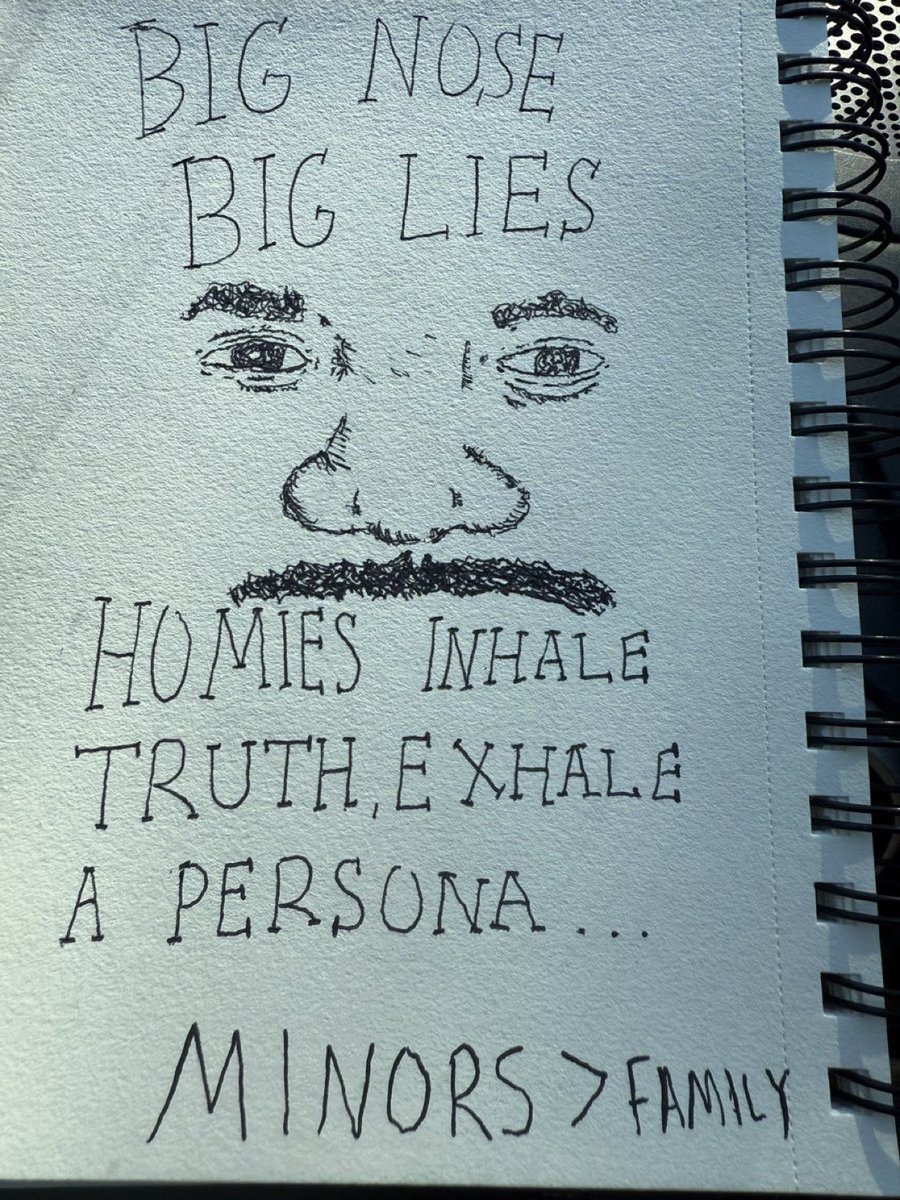 BIG NOSE
BIG LIES
HOMIES INHALE
TRUTH, EXHALE
A PERSONA...
MINORS > FAMILY